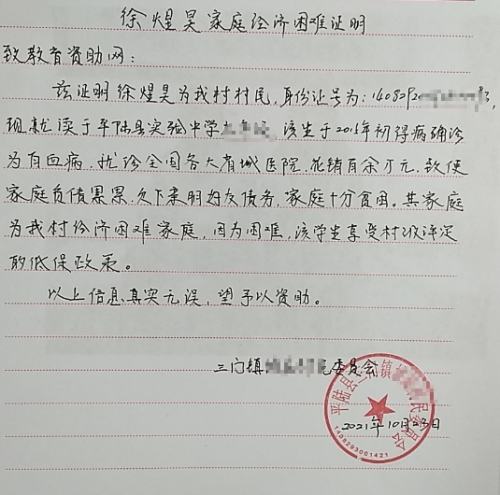 徐煌昊家庭经济困难证明
致教育资助网:
兹证明徐煌昊为我村村民,身份证号为:140829
现就读于平陆县实验中学 该生于2015年初得病确诊
为白血病,就诊全国各大省城医院,花销百余万元,致使
家庭负债累累,欠下亲朋好友债务,家庭十分贫困。其家庭
为我村经济困难家庭,因为困难,该学生享受村级评定
的低保政策。
以上信息真实无误,望予以资助。
三门镇 委员会
平陆县三门镇 民委员会
2021年10月23日
1408293001421